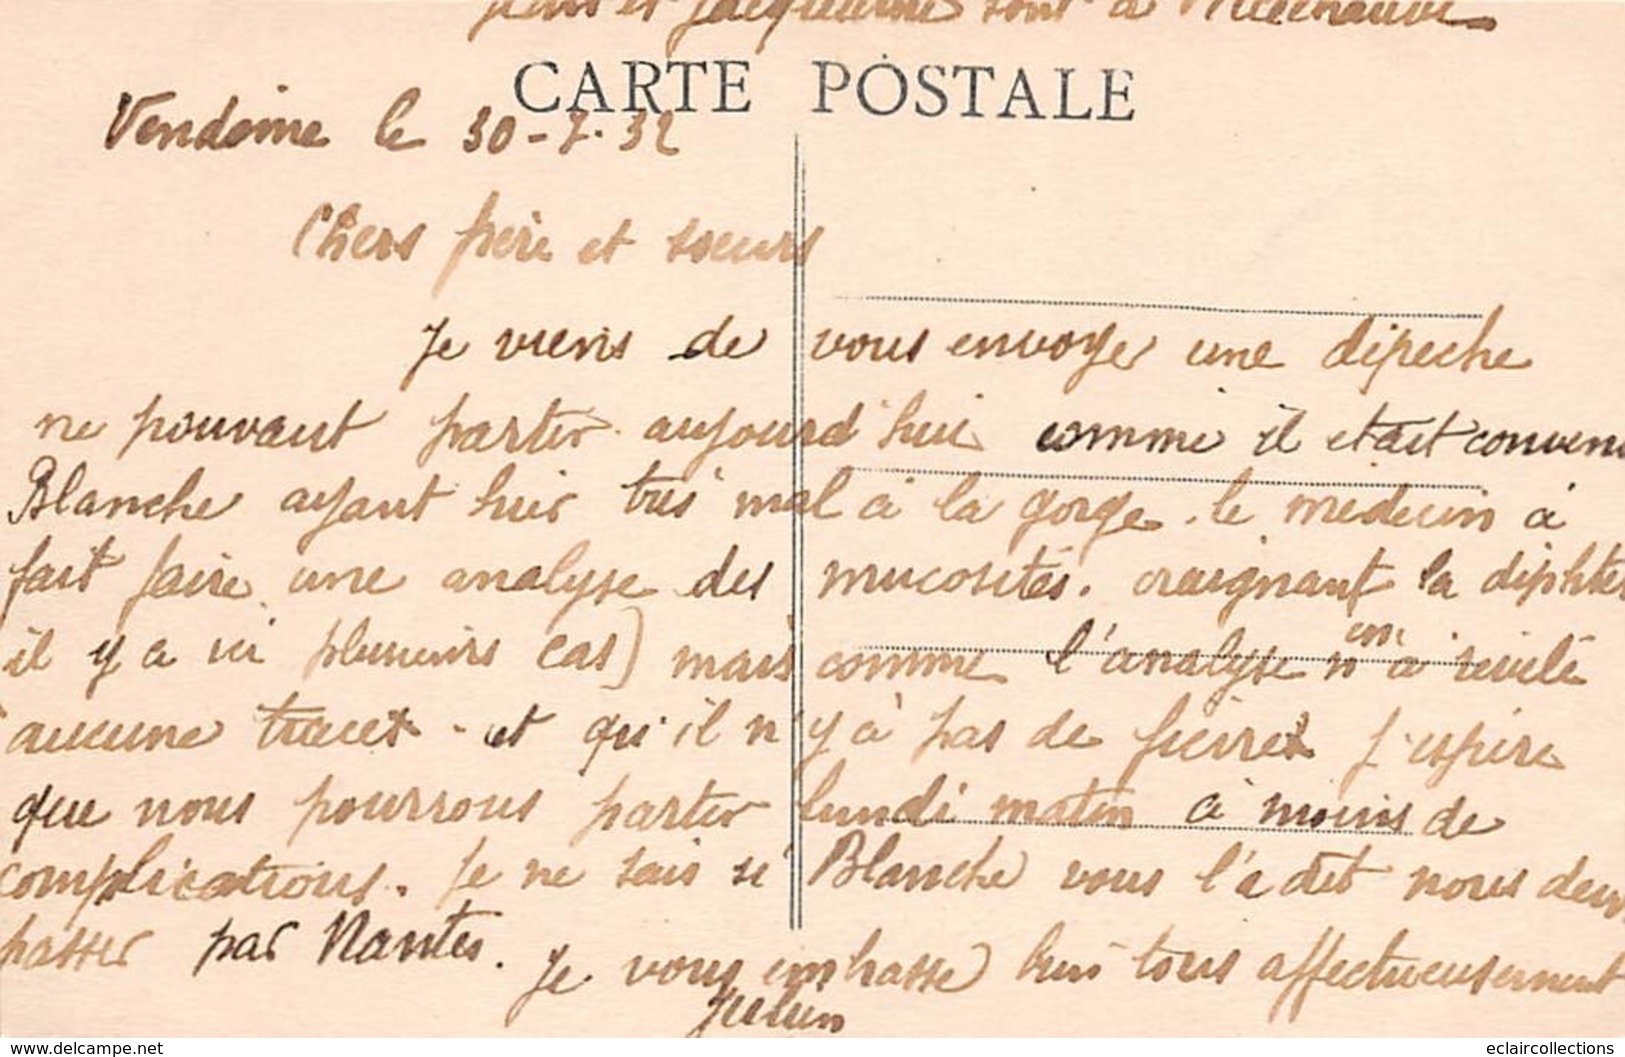 Jean et Jacqueline sont à
CARTE POSTALE
Vendôme le 30-7-32
Chers frère et soeurs
Je viens de vous envoyer une dépeche
ne pouvant partir aujourd'hui comme il etait conven
Blanche ayant hier très mal à la gorge. le medecin à
fait faire une analyse des mucosités. craignant la diphte
il y a ici plusieurs cas) mais comme l'analyse n'en a révélé
aucune trace - et qu'il n'y à pas de fievre j'espère
que nous pourrons partir lundi matin à moins de
complications. Je ne sais si Blanche vous l'a dit nous dev
passer par Nantes. Je vous embrasse bien tous affectueusement
Julien
www.delcampe.net
eclaircollections